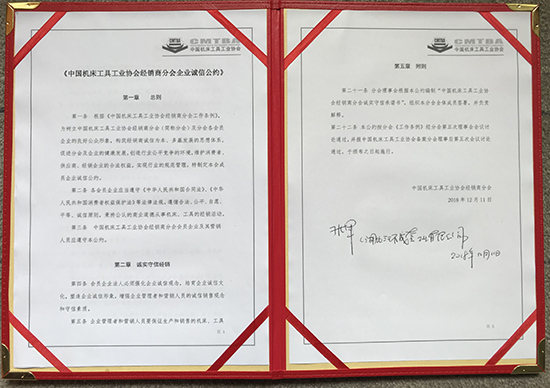 CMTBA
中国机床工具工业协会
《中国机床工具工业协会经销商分会企业诚信公约》
第一章 总则
第一条 根据《中国机床工具工业协会经销商分会工作条例》,
为树立中国机床工具工业协会经销商分会(简称分会)及分会各会员
企业的良好公众形象,
供应商、经销企业的合法权益,实现行业的规范管理,特制定本会成
员企业诚信公约。
第二条 各会员企业应当遵守《中华人民共和国合同法》、《中华人
民共和国消费者权益保护法》等法律法规,遵循合法、公开、自愿、
平等、诚信原则,秉持公认的商业道德从事机床、工具的经销活动。
第三条 中国机床工具工业协会经销商分会会员企业及其营销
人员应遵守本公约。
第二章 诚实守信经销
第四条 会员企业法人必须强化企业诚信观念,培育企业诚信文
化,塑造企业诚信形象,增强企业管理者和营销人员的诚信销售观念
和守信素质。
第五条 企业管理者和营销人员要保证生产和销售的机床、工具
页 1
CMTBA
中国机床工具工业协会
第五章 附则
第二十一条 分会理事会根据本公约编制“中国机床工具工业协
会经销商分会诚实守信承诺书”,组织本分会全体成员签署,并负责
解释。
第二十二条 本公约按分会《工作条例》经分会第五次理事会议讨
论通过,并报中国机床工具工业协会备案
通过,于颁布之日起施行。
中国机床工具工业协会经销商分会
2018 年 12 月 11 日